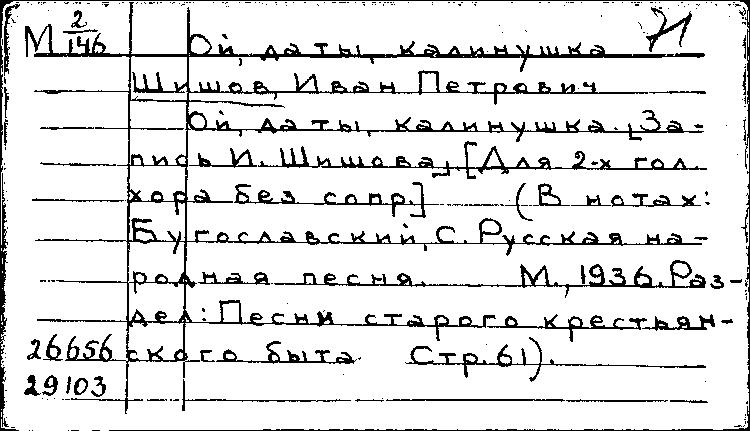 М 2/146 Ой, да ты, калинушка 71
Шишов, Иван Петрович
Ой, да ты, калинушка. [За-
пись И. Шишова], [Для 2-х гол.
хора без сопр.] (В нотах:
Бугославский, С. Русская на-
родная песня. М., 1936. Раз-
дел: Песни старого крестьян-
26656 ского быта Стр. 61).
29103